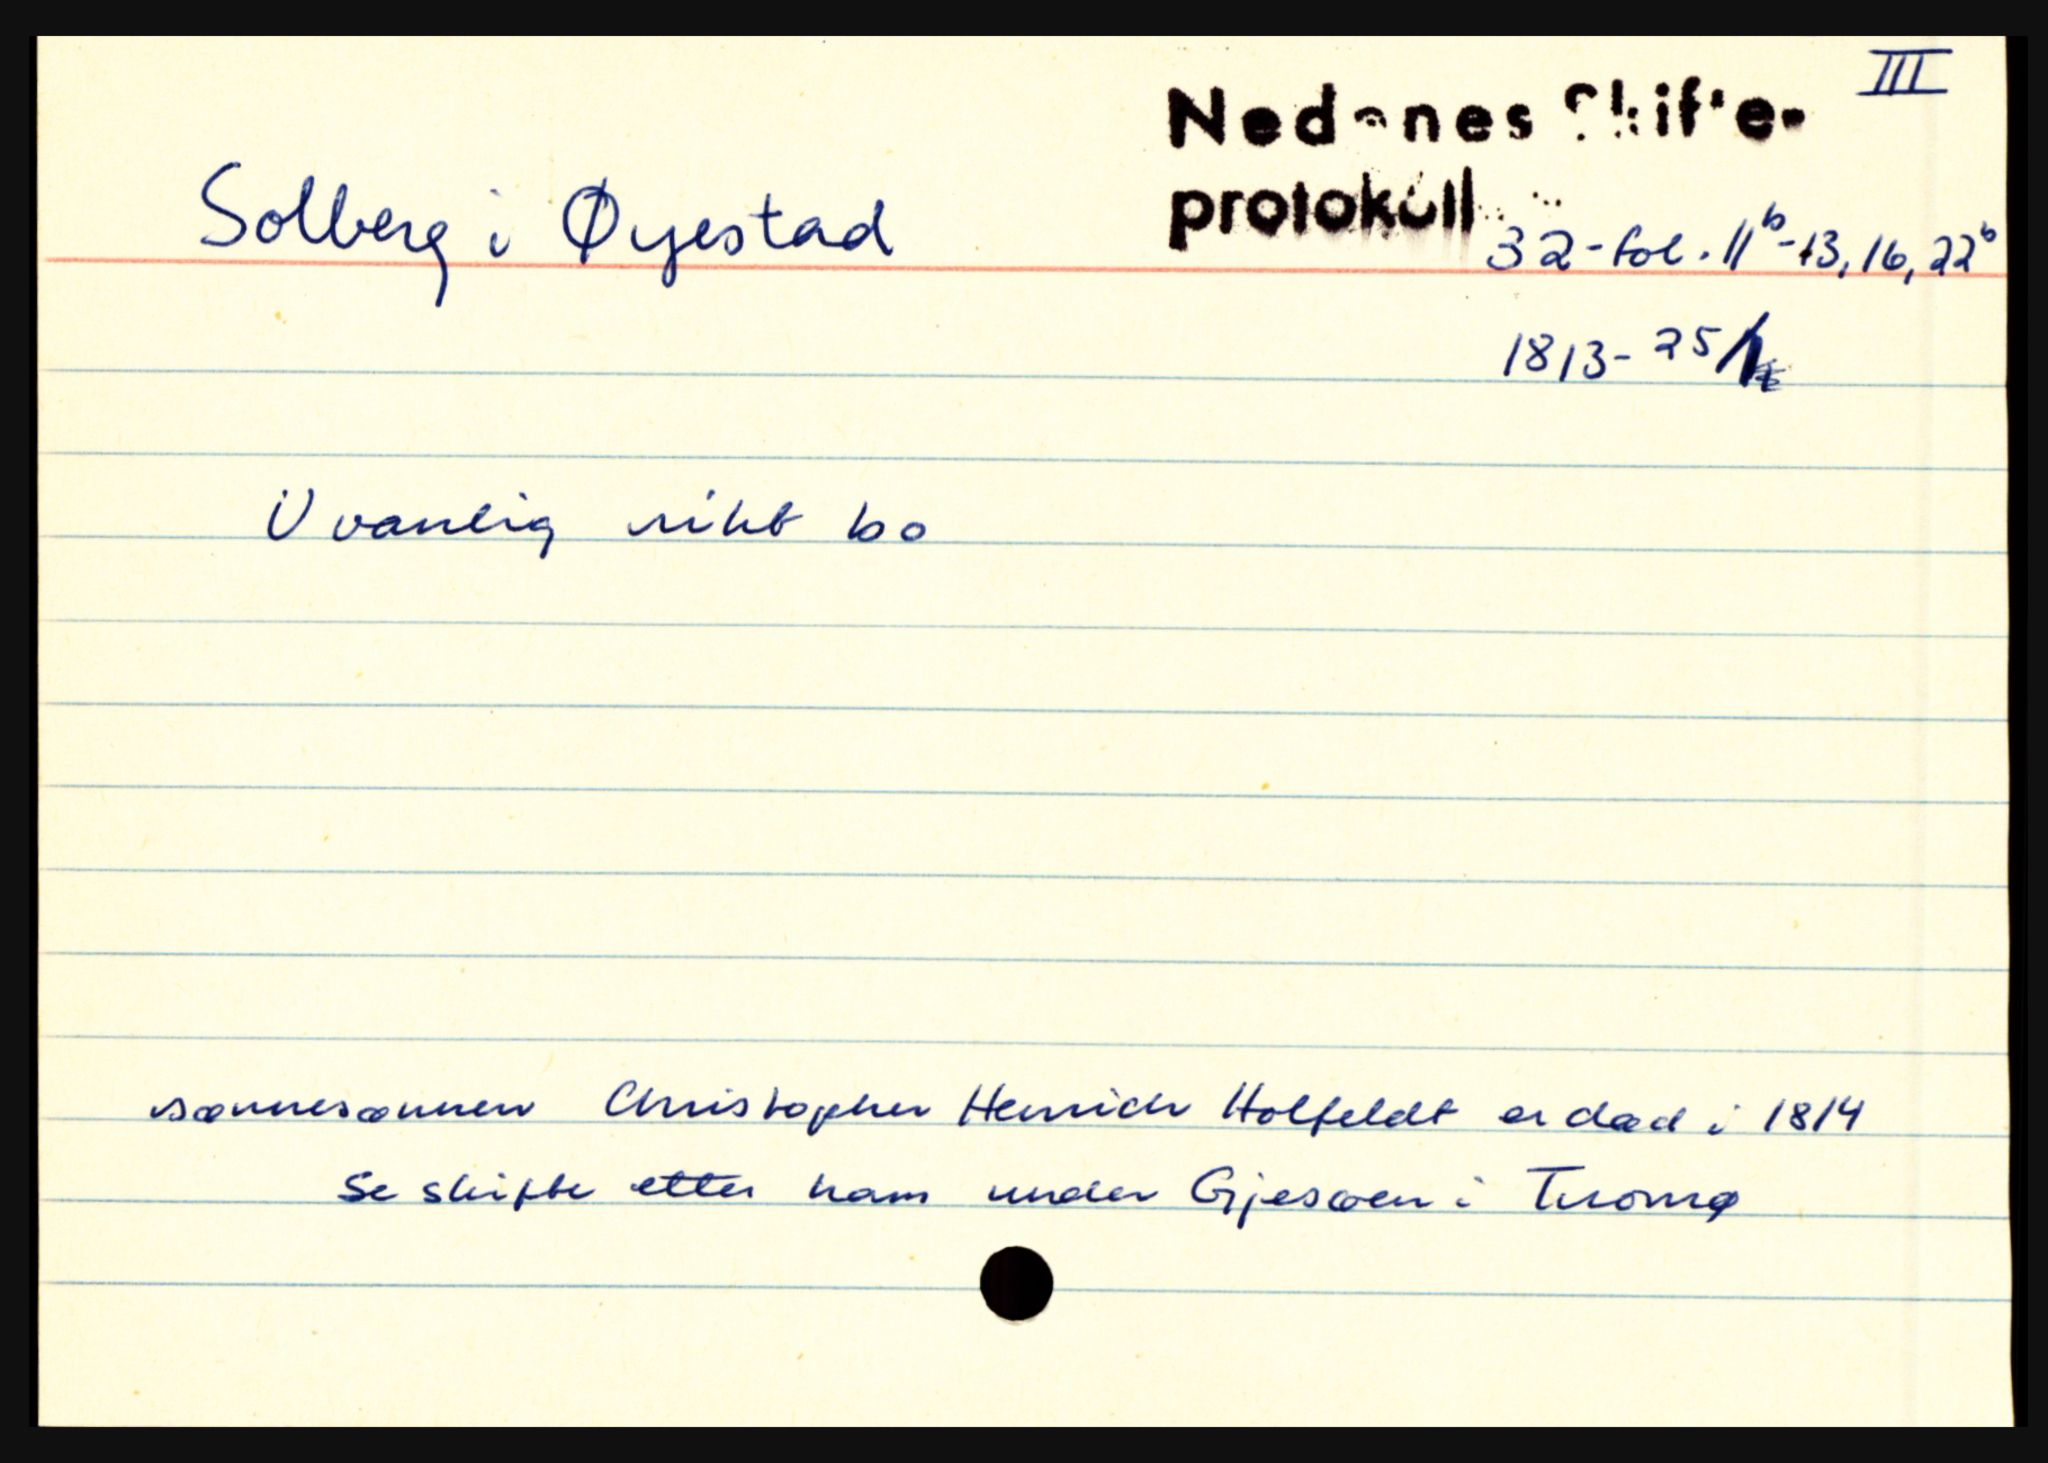 III
Nedenes Skifte-
protokoll
Solberg i Øyestad
32-fol. 11b-13, 16, 22b
1813- 25/
Uvanlig rikt bo
sønnesønnen Christopher Henrich Holfeldt er død i 1814
Se skifte etter ham under Gjesøen i Tromø